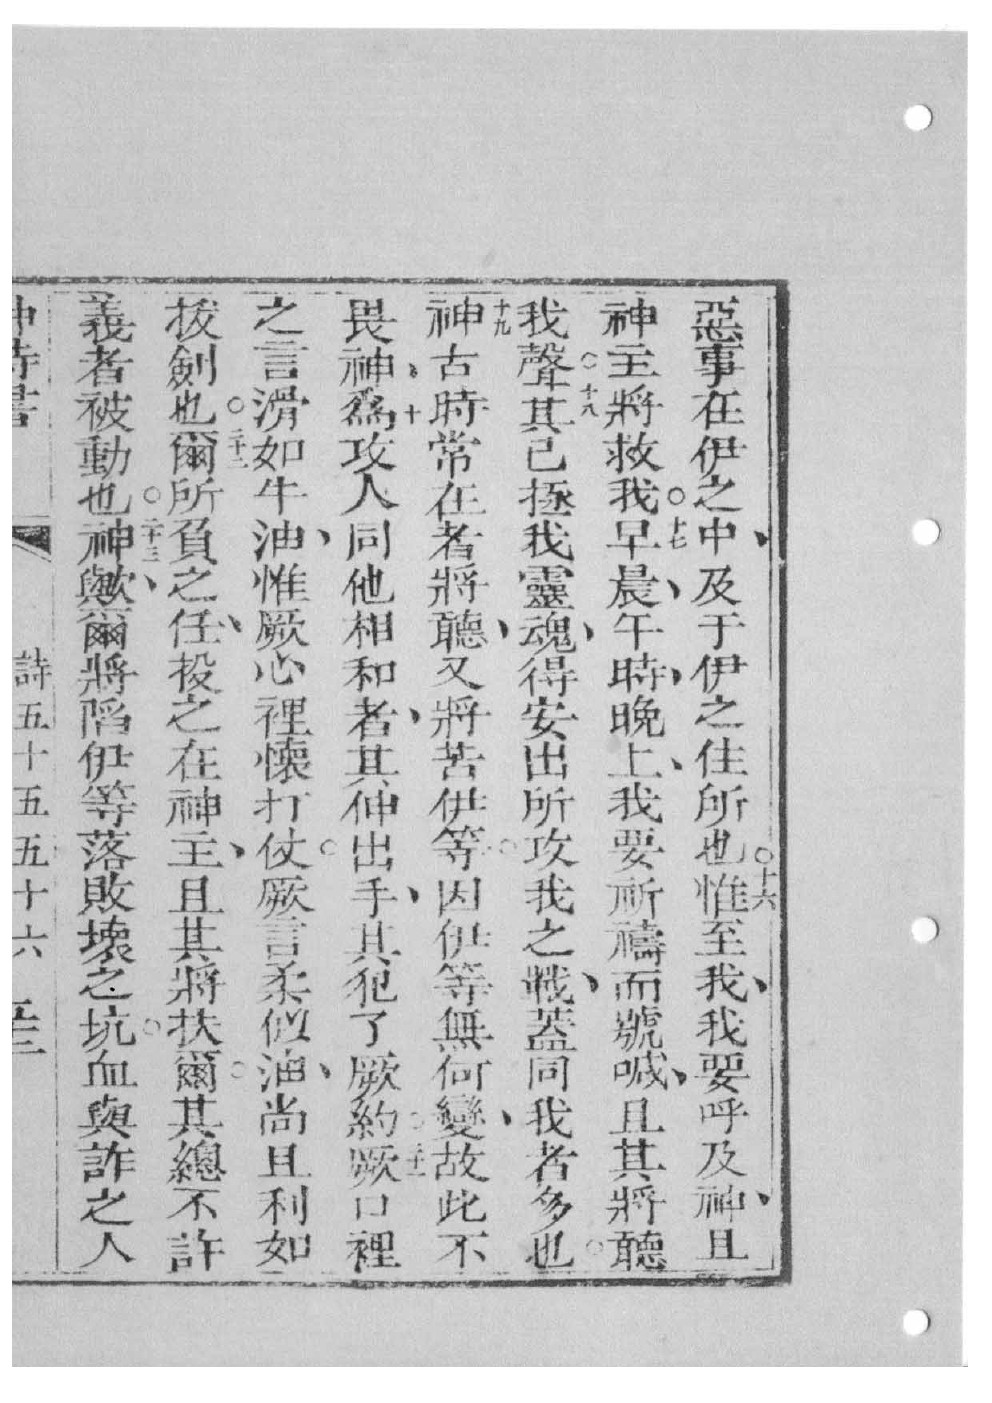 惡事在伊之中、及于伊之住所也○十六惟至我、我要呼及神、且
神主將救我○十七早晨、午時、晚上、我要祈禱而號喊、且其將聽
我聲○十八其已拯我靈魂、得安出所攻我之戰、蓋同我者多也○
十九神古時常在者將聽、又將苦伊等○因伊等無何變、故此不
畏神、二十爲攻人同他相和者、其伸出手、其犯了厥約○二十一厥口裡
之言滑如牛油、惟厥心裡懷打仗○厥言柔似油、尚且利如
拔劍也○二十二爾所負之任、投之在神主、且其將扶爾○其總不許
義者被動也○二十三神歟、爾將陷伊等落敗壞之坑○血與詐之人
神詩書 詩五十五五十六 五十三